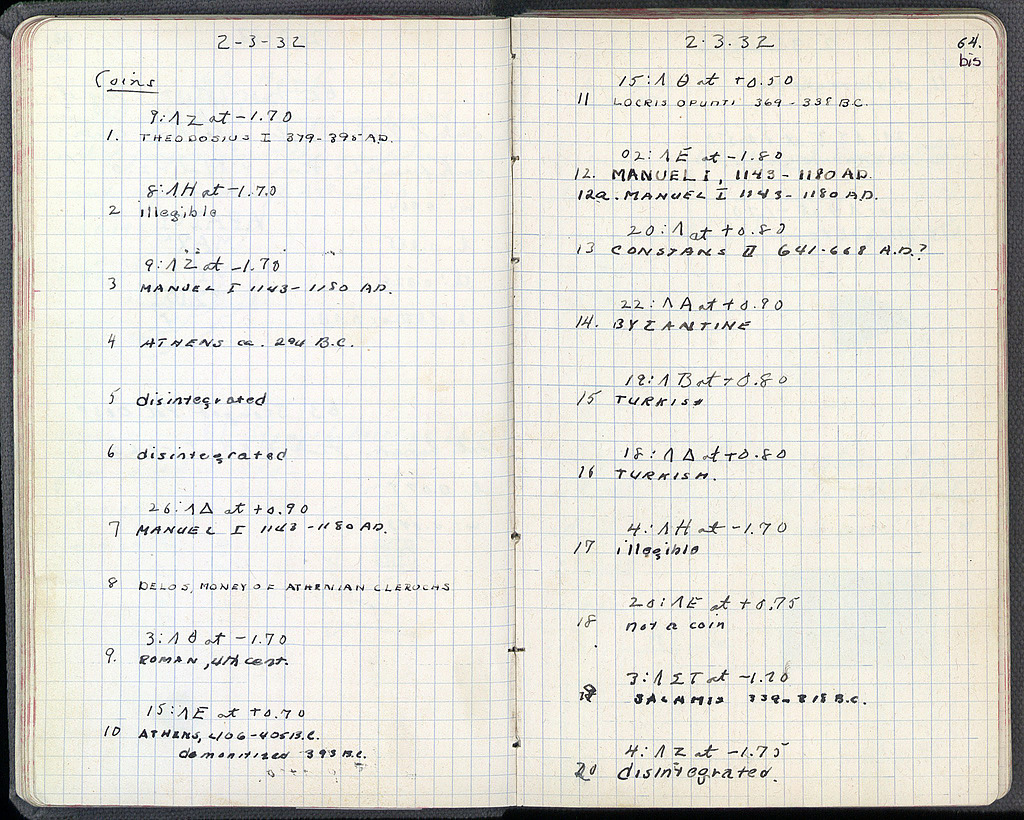 2-3-32
Coins
9:ΛΖ at -1.70
1. THEODOSIUS I 379-395 A.D.
8:ΛΗ at -1.70
2 illegible
9:ΛΖ at -1.70
3 MANUEL I 1143-1180 A.D.
4 ATHENS ca. 294 B.C.
5 disintegrated
6 disintegrated
26:ΛΔ at +0.90
7 MANUEL I 1143-1180 A.D.
8 DELOS, MONEY OF ATHENIAN CLERUCHS
3:ΛΘ at -1.70
9. ROMAN, 4th cent.
15:ΛΕ at +0.70
10 ATHENS, 406-405 B.C.
demonitized 393 B.C.
2.3.32
64.
bis
15:ΛΘ at +0.50
11 LOCRIS OPUNTI 369-338 B.C.
02:ΛΕ at -1.80
12. MANUEL I, 1143-1180 A.D.
12a. MANUEL I 1143-1180 A.D.
20:Λ at +0.80
13 CONSTANS II 641-668 A.D.?
22:ΛΑ at +0.90
14. BYZANTINE
19:ΛΒ at +0.80
15 TURKISH
18:ΛΔ at +0.80
16 TURKISH.
4:ΛΗ at -1.70
17 illegible
20:ΛΕ at +0.75
18 not a coin
3:ΛΣΤ at
19 SALAMIS 339-318 B.C.
4:ΛΖ at -1.75
20 disintegrated.